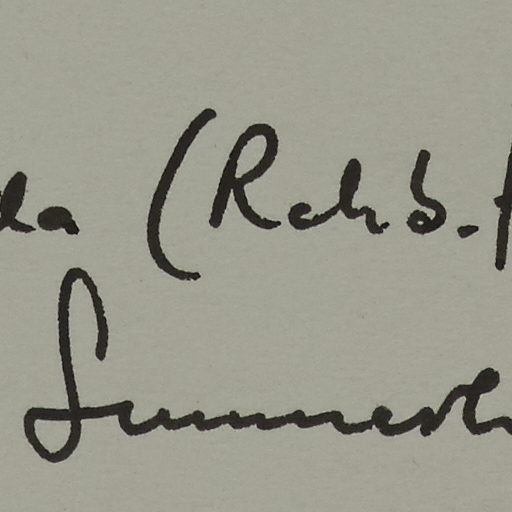 da (Rchb.f
Summerh